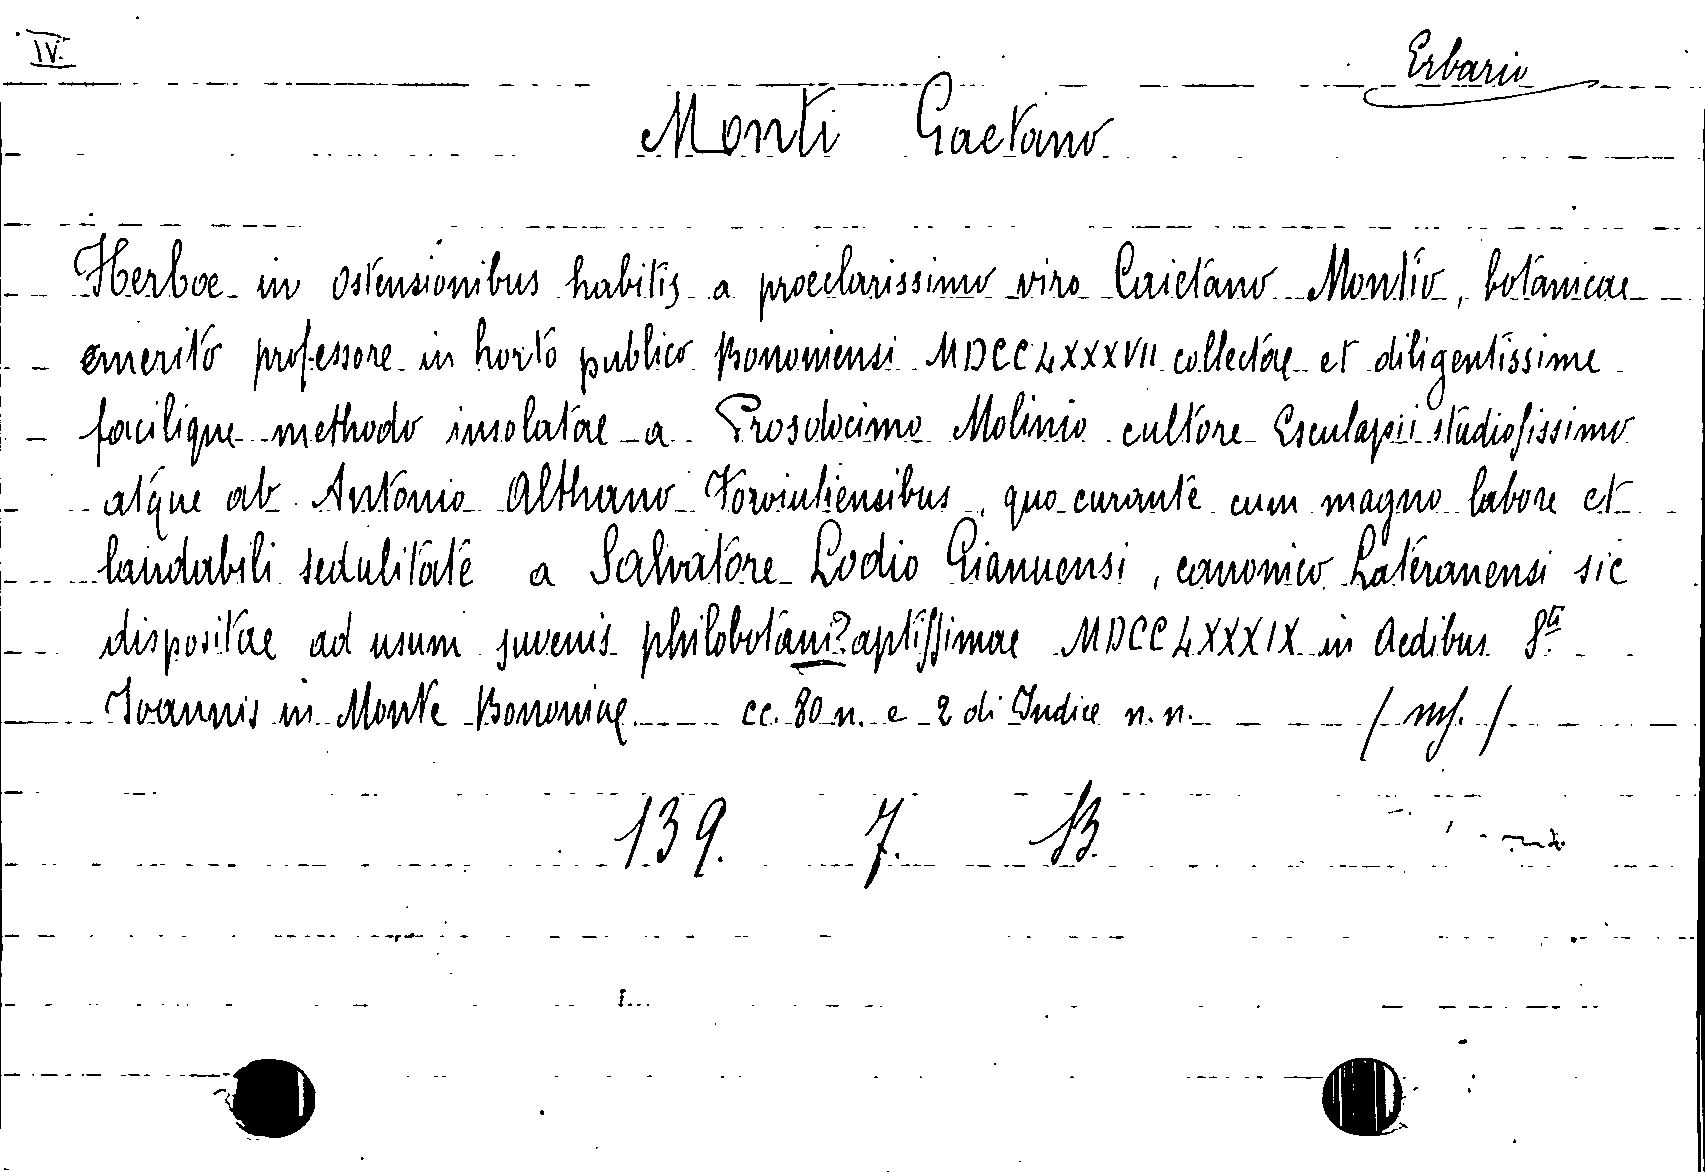 IV.
Erbario
Monti Gaetano
Herbae in ostensionibus habitis a praeclarissimo viro Caietano Montio, botanicae
emerito professore in horto publico Bononiensi MDCCLXXXVII collectae et diligentissime
facilique methodo insolatae a Prosdocimo Molinio cultore Esculapii studiosissimo
atque ab Antonio Althano Foroiuliensibus, quo curante cum magno labore et
laudabili sedulitate a Salvatore Lodio Gianuensi, canonico Lateranensi sic
dispositae ad usum juvenis philobotani? aptissimae MDCCLXXXIX in Aedibus S.ti
Ioannis in Monte Bononiae cc. 80 n. e 2 di Indice n. n. / ms. /
139. 7. B.